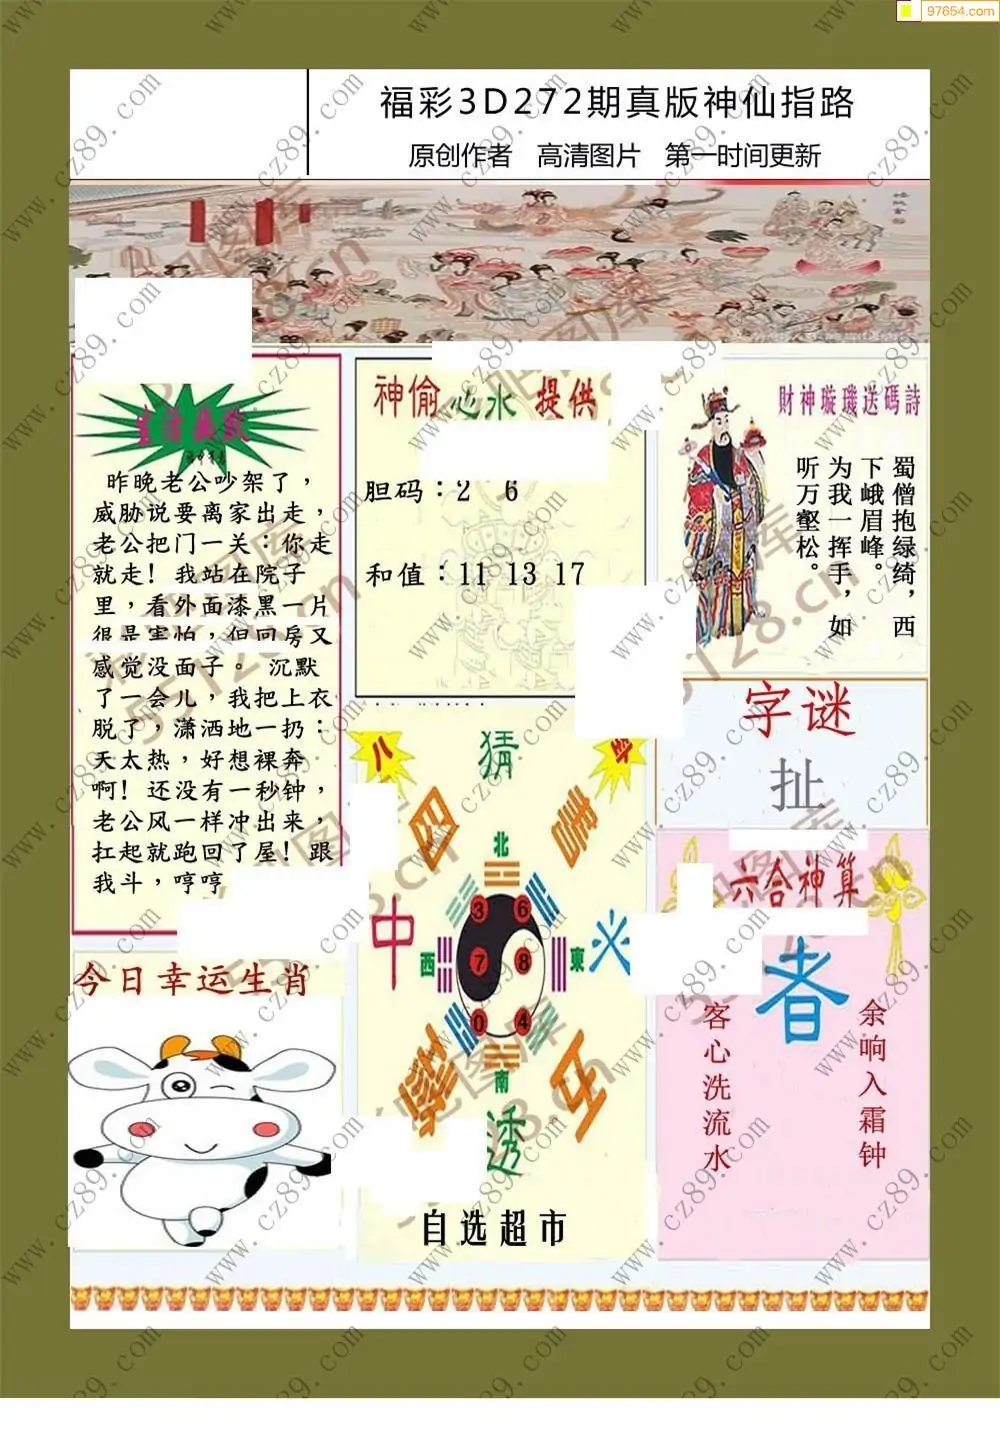 97654.com
福彩3D272期真版神仙指路
原创作者 高清图片 第一时间更新
生活幽默
昨晚老公吵架了，
威胁说要离家出走，
老公把门一关：你走
就走！我站在院子
里，看外面漆黑一片
很是害怕，但回房又
感觉没面子。 沉默
了一会儿，我把上衣
脱了，潇洒地一扔：
天太热，好想裸奔
啊！还没有一秒钟，
老公风一样冲出来，
扛起就跑回了屋！跟
我斗，哼哼
神偷心水提供
胆码：2 6
和值：11 13 17
財神璇璣送碼詩
蜀僧抱绿绮，西
下峨眉峰。
为我一挥手，如
听万壑松。
字谜
扯
八
猜
北
中
西
東
南
3 6
7 8
0 4
透
自选超市
六合神算
者
余响入霜钟
客心洗流水
今日幸运生肖
www.cz89.com
55128.cn